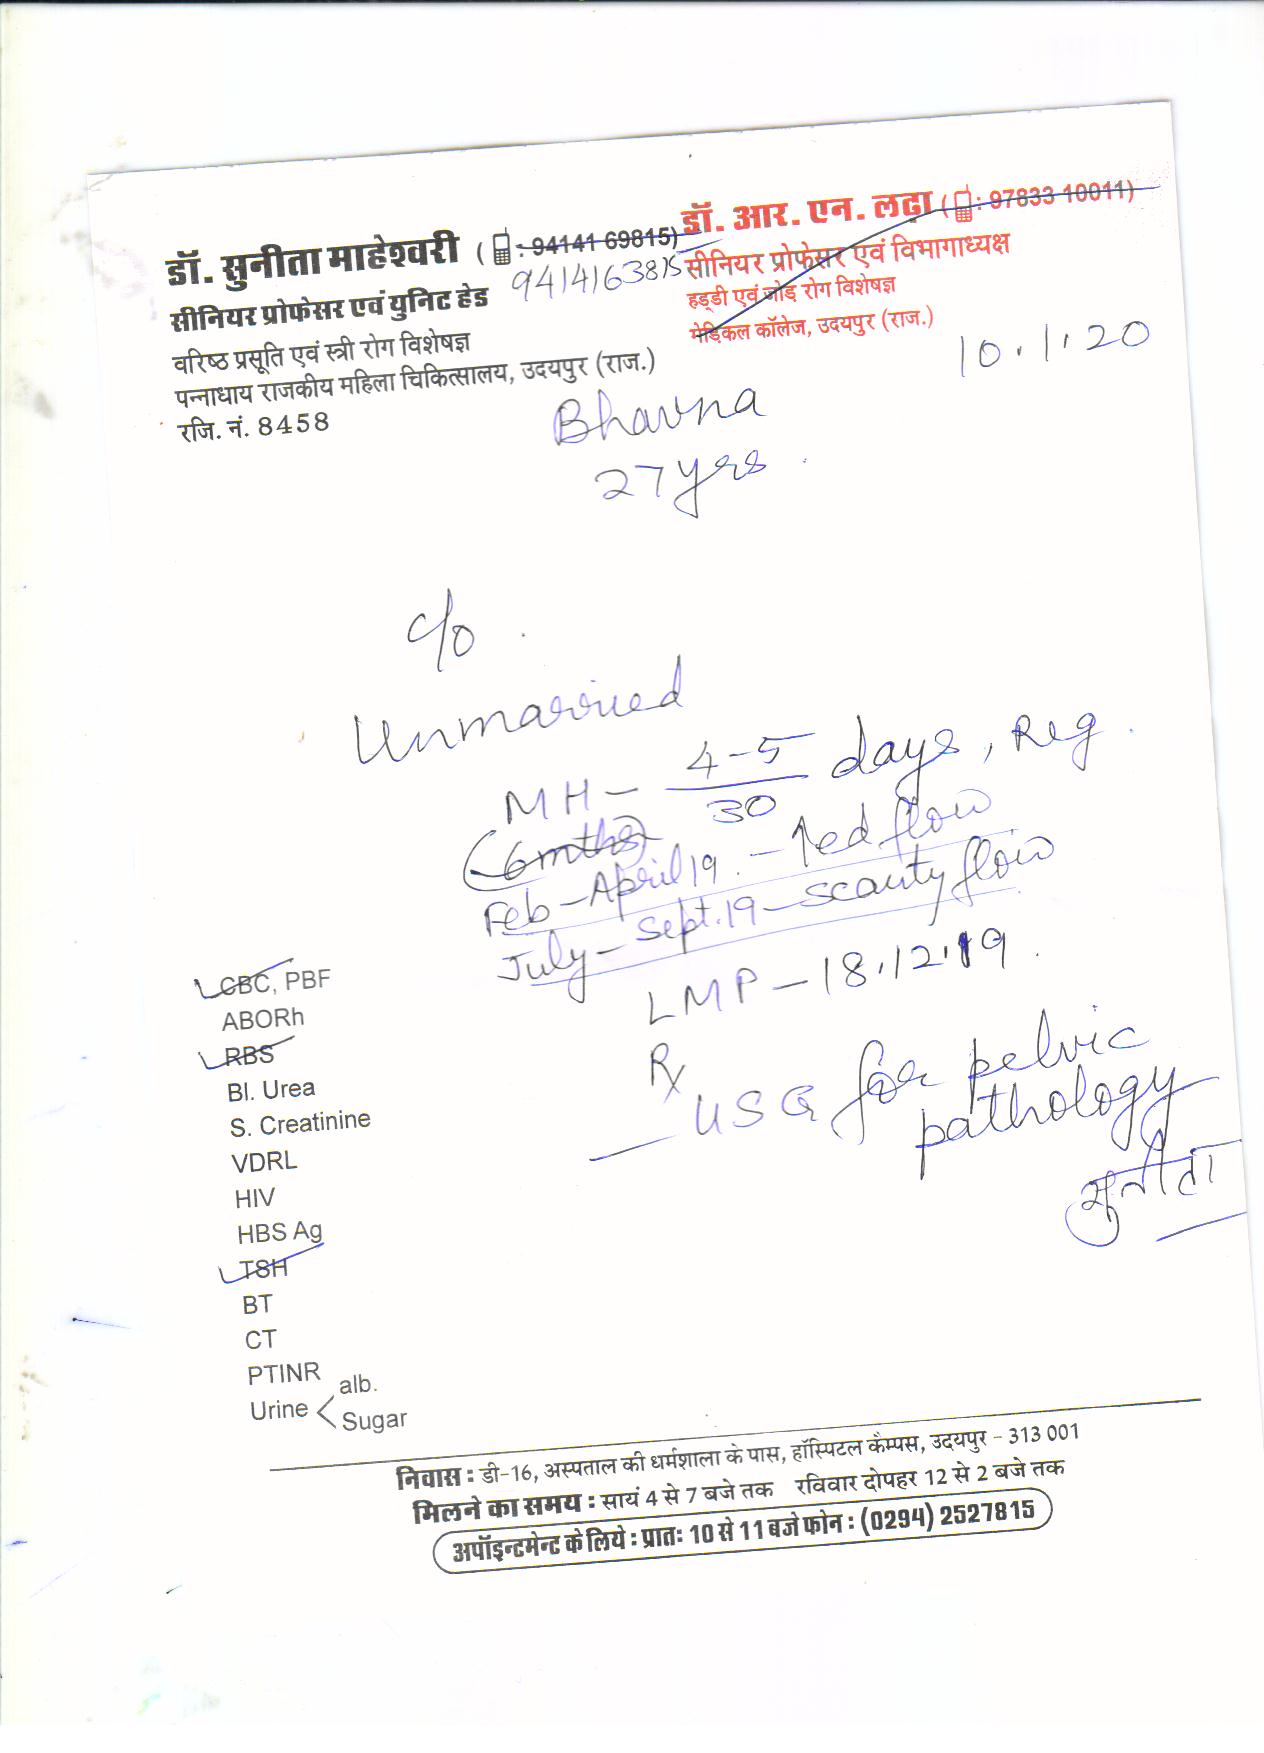 डॉ. सुनीता माहेश्वरी ( : 94141 69815)
9414163815
सीनियर प्रोफेसर एवं युनिट हेड
वरिष्ठ प्रसूति एवं स्त्री रोग विशेषज्ञ
पन्नाधाय राजकीय महिला चिकित्सालय, उदयपुर (राज.)
रजि. नं. 8458
डॉ. आर. एन. लढ़ा ( : 97833 10011)
सीनियर प्रोफेसर एवं विभागाध्यक्ष
हड्डी एवं जोड़ रोग विशेषज्ञ
मेडिकल कॉलेज, उदयपुर (राज.)
10.1.20
Bhavna
27 yrs.
c/o
Unmarried
MH - 4-5/30 days, Reg.
(6 mths)
Feb - April 19. - ↑ed flow
July - Sept. 19 - scanty flow
LMP - 18.12.19.
Rx
USG for pelvic
pathology
सुनीता
CBC, PBF
ABORh
RBS
Bl. Urea
S. Creatinine
VDRL
HIV
HBS Ag
TSH
BT
CT
PTINR
Urine < alb.
Sugar
निवास : डी-16, अस्पताल की धर्मशाला के पास, हॉस्पिटल कैम्पस, उदयपुर - 313 001
मिलने का समय : सायं 4 से 7 बजे तक रविवार दोपहर 12 से 2 बजे तक
अपॉइन्टमेन्ट के लिये : प्रातः 10 से 11 बजे फोन : (0294) 2527815